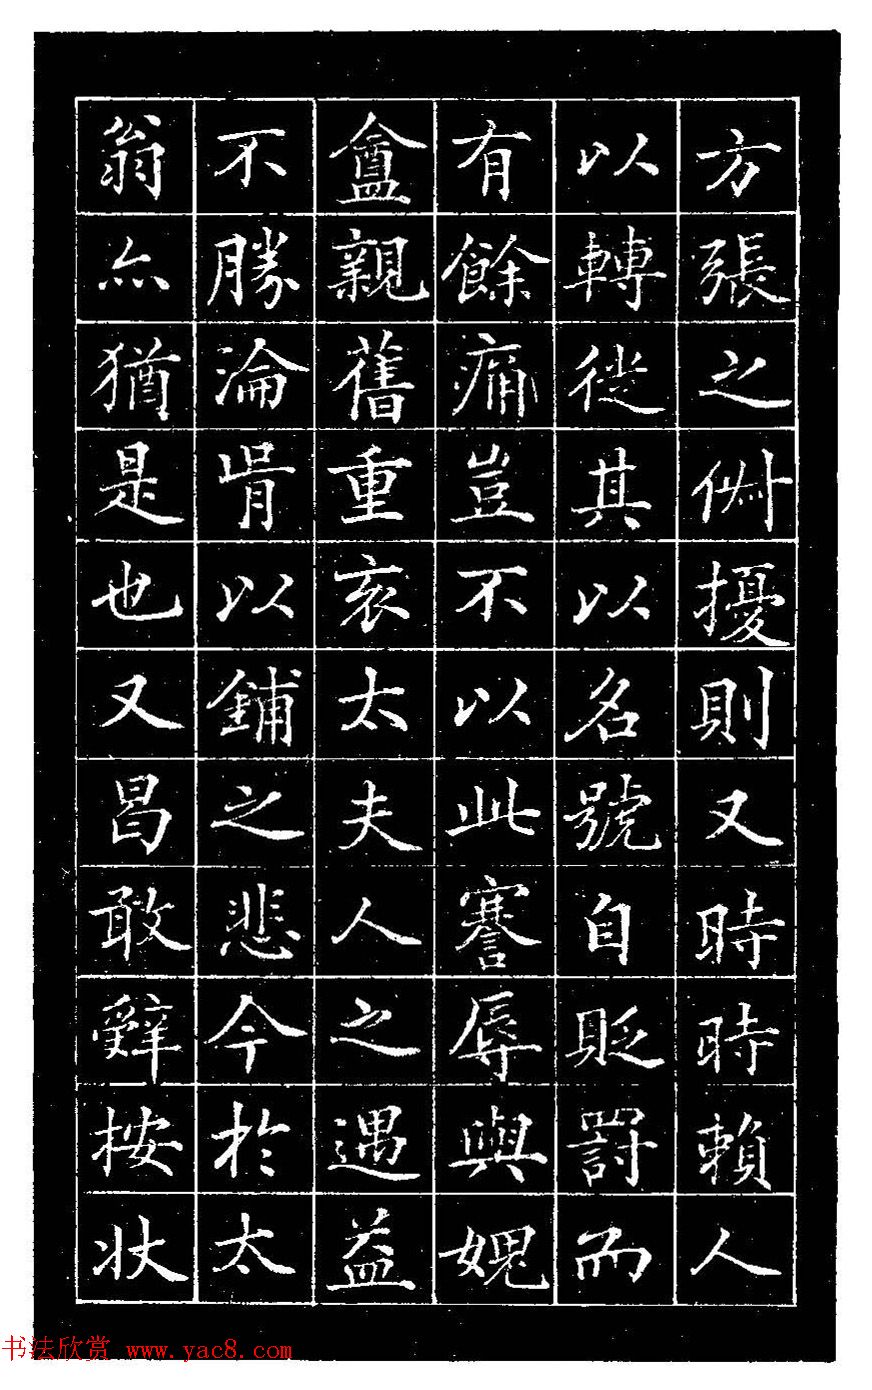 方張之侜擾則又時時賴人
以轉徙其以名號自貶罰而
有餘痛豈不以此謇辱與媿
盦親舊重哀太夫人之遇益
不勝淪胥以鋪之悲今於太
翁亦猶是也又曷敢辭按狀
书法欣赏 www.yac8.com